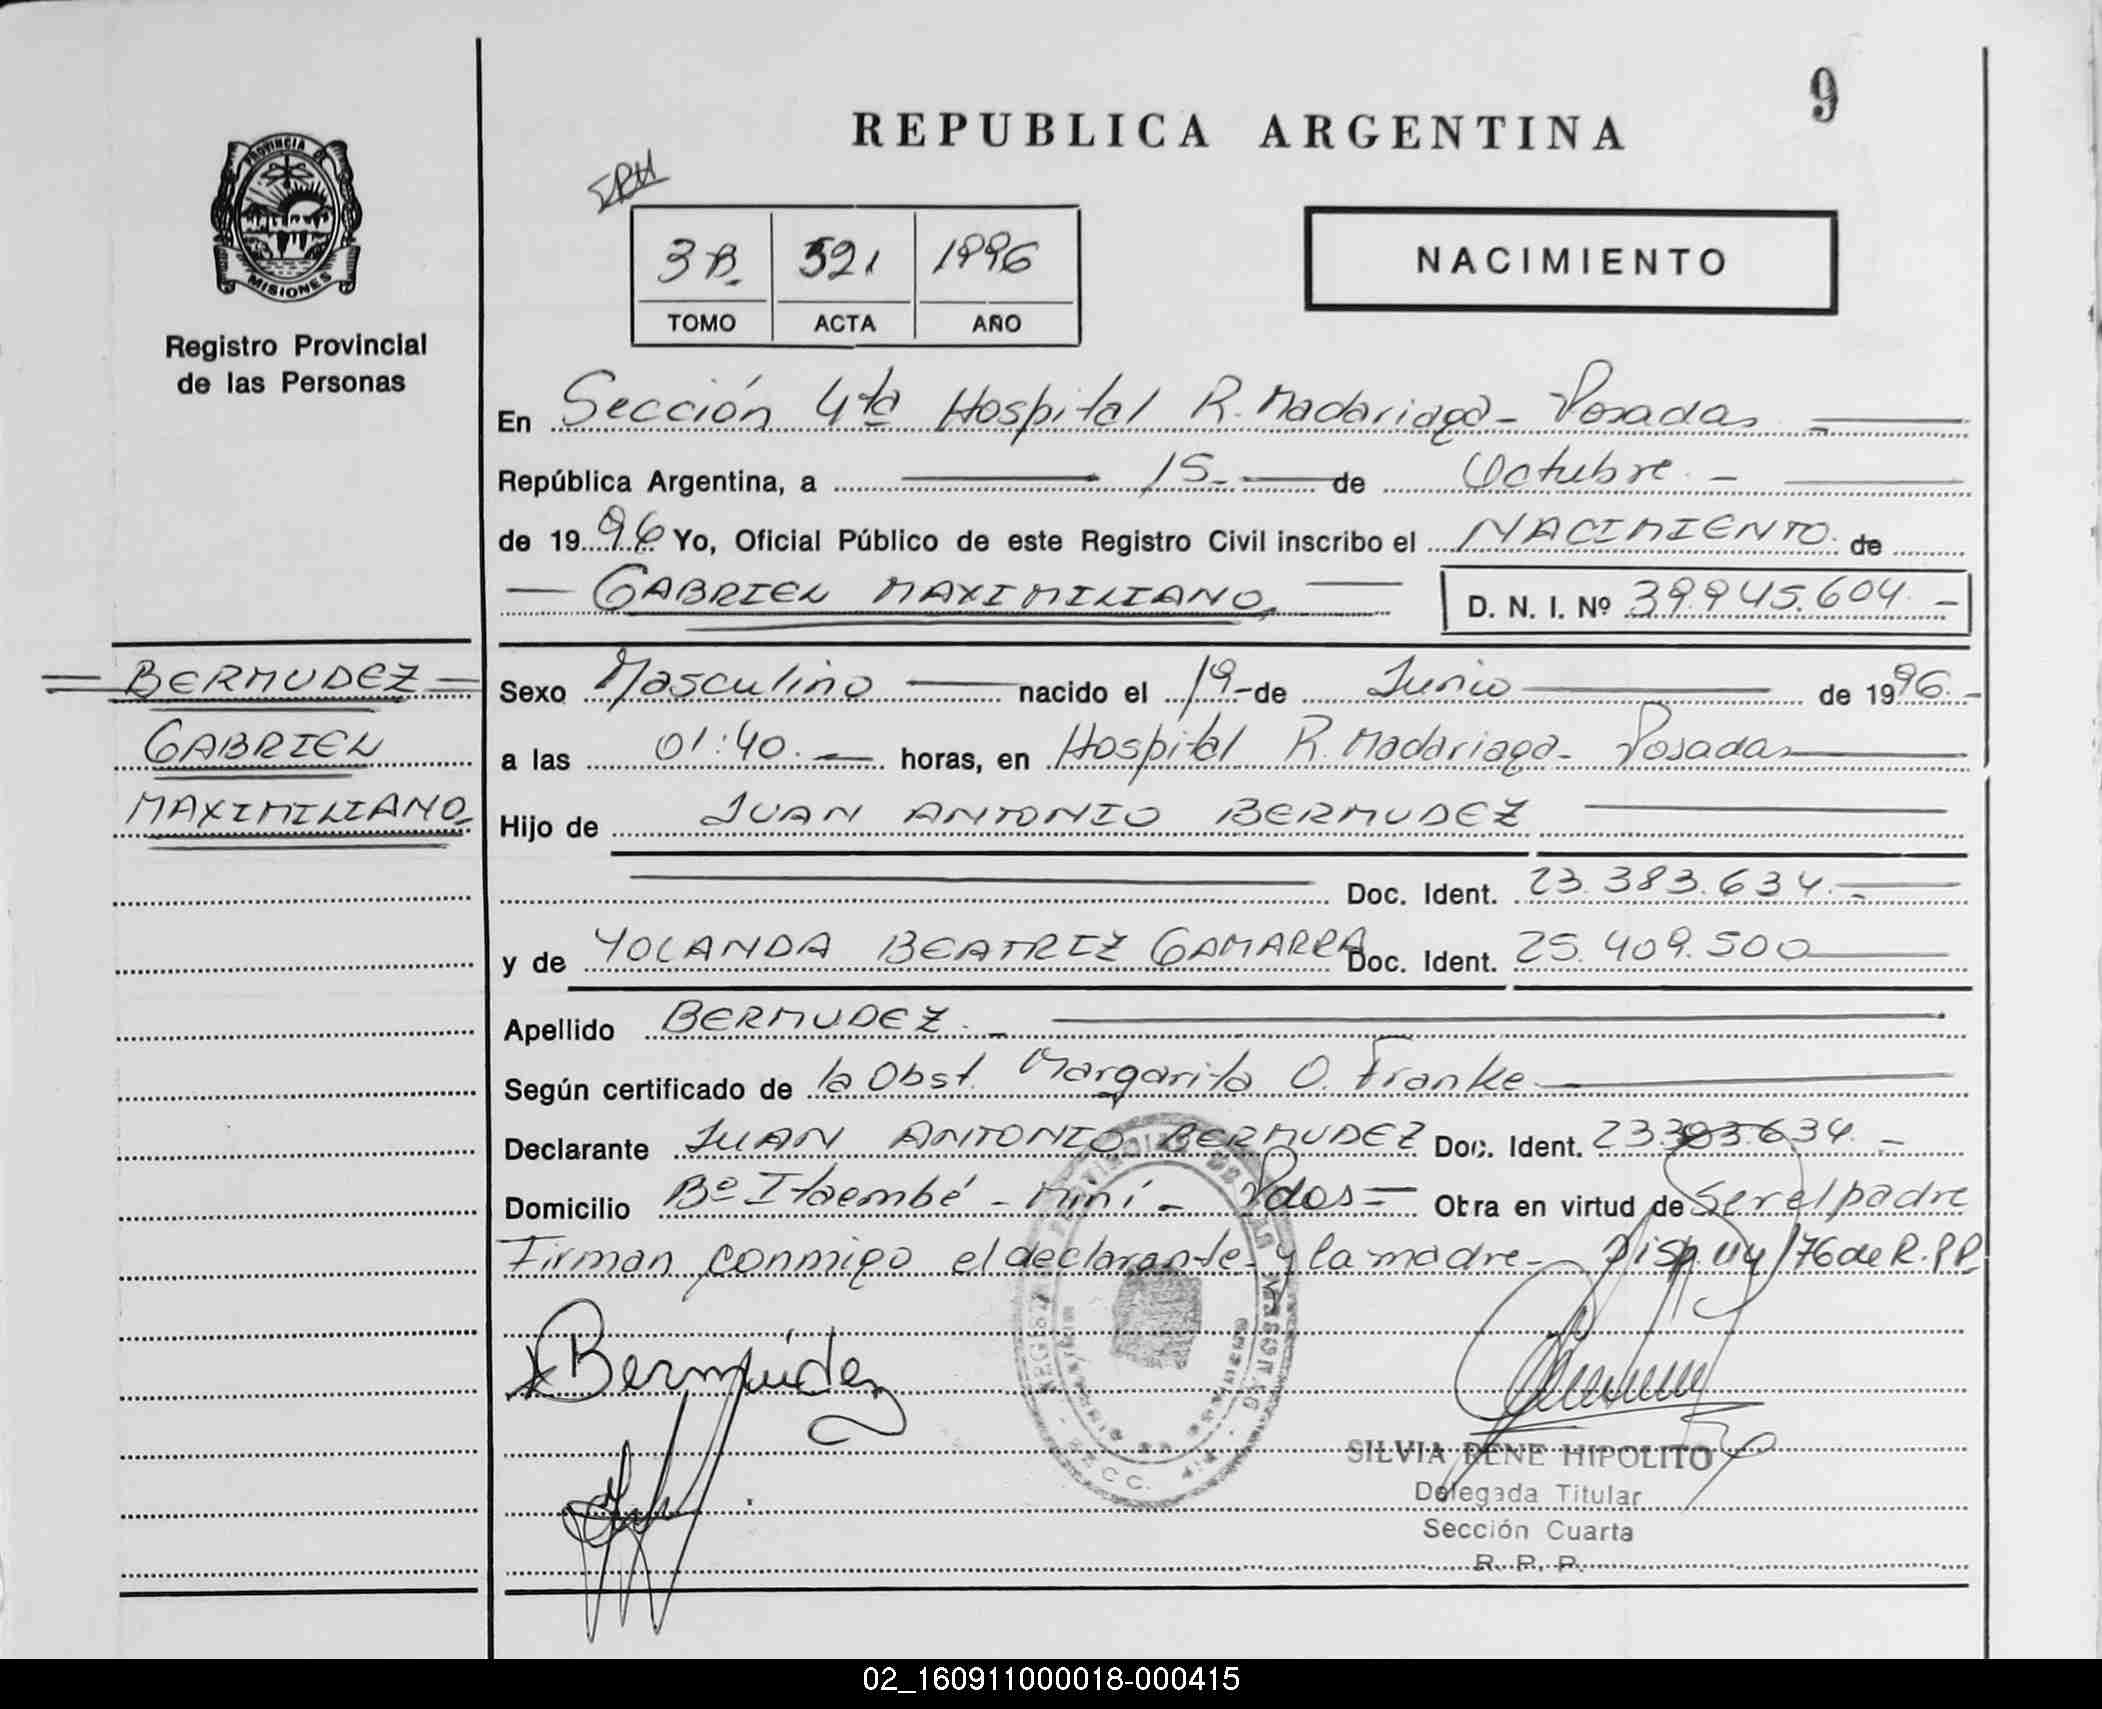 9
REPUBLICA ARGENTINA
PROVINCIA DE
MISIONES
Registro Provincial
de las Personas
3 B. 521 1996
TOMO ACTA AÑO
NACIMIENTO
En Sección 4ta Hospital R. Madariaga - Posadas
República Argentina, a 15 - de Octubre. -
de 1996 Yo, Oficial Público de este Registro Civil inscribo el NACIMIENTO. de
GABRIEL MAXIMILIANO,
D. N. I. Nº 39.945.604. -
BERMUDEZ
GABRIEL
MAXIMILIANO
Sexo Masculino nacido el 19 - de Junio de 1996. -
a las 01:40. - horas, en Hospital R. Madariaga - Posadas
Hijo de JUAN ANTONIO BERMUDEZ
Doc. Ident. 23.383.634. -
y de YOLANDA BEATRIZ GAMARRA Doc. Ident. 25.409.500
Apellido BERMUDEZ. -
Según certificado de la Obst. Margarita O. Franke
Declarante JUAN ANTONIO BERMUDEZ Doc. Ident. 23.383.634. -
Domicilio Bº Itaembé - Miní - Pdas = Obra en virtud de Ser el padre
Firman conmigo el declarante y la madre - Disp. 114/76 de R.P.P.
Bermúdez
SILVIA RENE HIPOLITO
Delegada Titular
Sección Cuarta
R. P. P.
02_160911000018-000415